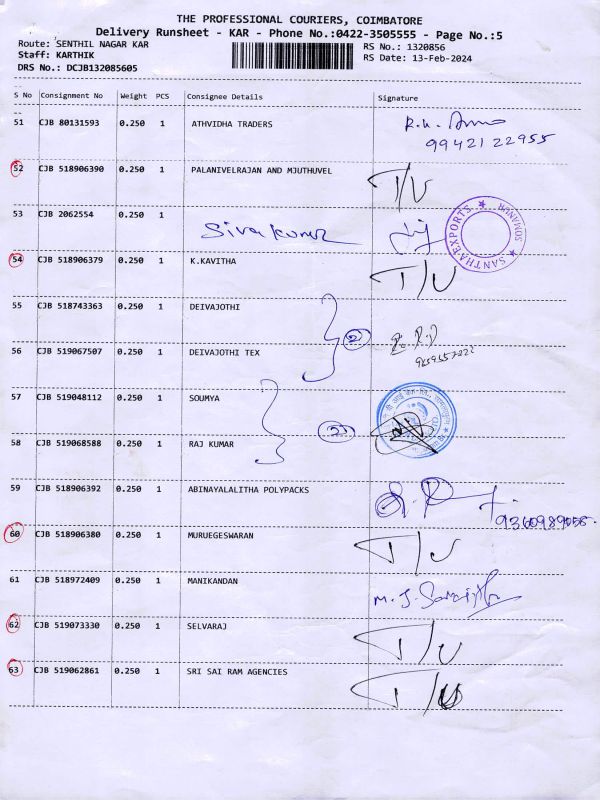 THE PROFESSIONAL COURIERS, COIMBATORE
Delivery Runsheet - KAR - Phone No.:0422-3505555 - Page No.:5
Route: SENTHIL NAGAR KAR
RS No.: 1320856
Staff: KARTHIK
RS Date: 13-Feb-2024
DRS No.: DCJB132085605
S No Consignment No Weight PCS Consignee Details Signature
51 CJB 80131593 0.250 1 ATHVIDHA TRADERS
9942122955
52 CJB 518906390 0.250 1 PALANIVELRAJAN AND MJUTHUVEL T/U
53 CJB 2062554 0.250 1 Sivakumar
SANTHA EXPORTS ★ SOMANUR ★
54 CJB 518906379 0.250 1 K.KAVITHA T/U
55 CJB 518743363 0.250 1 DEIVAJOTHI
56 CJB 519067507 0.250 1 DEIVAJOTHI TEX
57 CJB 519048112 0.250 1 SOUMYA
58 CJB 519068588 0.250 1 RAJ KUMAR
59 CJB 518906392 0.250 1 ABINAYALALITHA POLYPACKS
60 CJB 518906380 0.250 1 MURUEGESWARAN T/U
61 CJB 518972409 0.250 1 MANIKANDAN
62 CJB 519073330 0.250 1 SELVARAJ T/U
63 CJB 519062861 0.250 1 SRI SAI RAM AGENCIES T/U